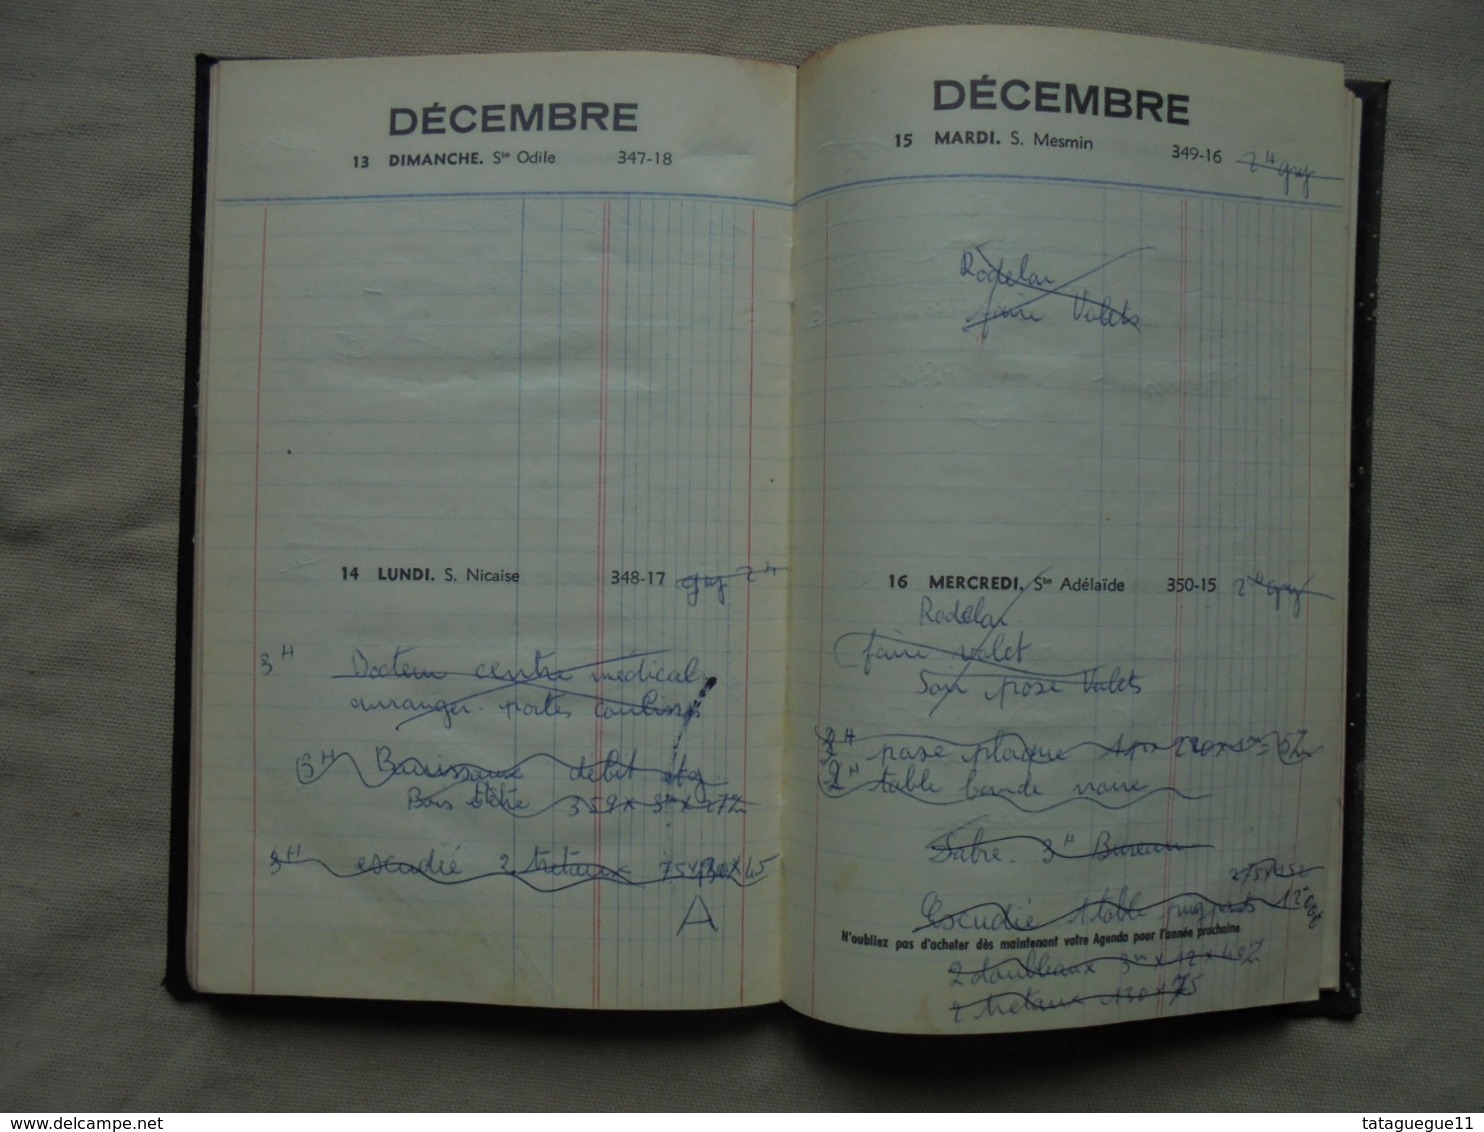 DÉCEMBRE
13 DIMANCHE. Ste Odile 347-18
14 LUNDI. S. Nicaise 348-17 guy 2H
3H Docteur centre médical
arranger portes couliss
3H débit
Bois 359 x 3m x 27
3H escudié 2 tretaux 75 x 130 x 45
A
DÉCEMBRE
15 MARDI. S. Mesmin 349-16 2H guy
Rodelar
faire Valets
16 MERCREDI. Ste Adélaïde 350-15 2H guy
Rodelar
faire valet
Soir pose Valets
pose plaque
2H table bande noire
3H Bureau
Escudié 1 table
N'oubliez pas d'acheter dès maintenant votre Agenda pour l'année prochaine
2 doubleaux 3m x 12 x
2 tretaux 130 x 75
delcampe.net
tatagueugue11